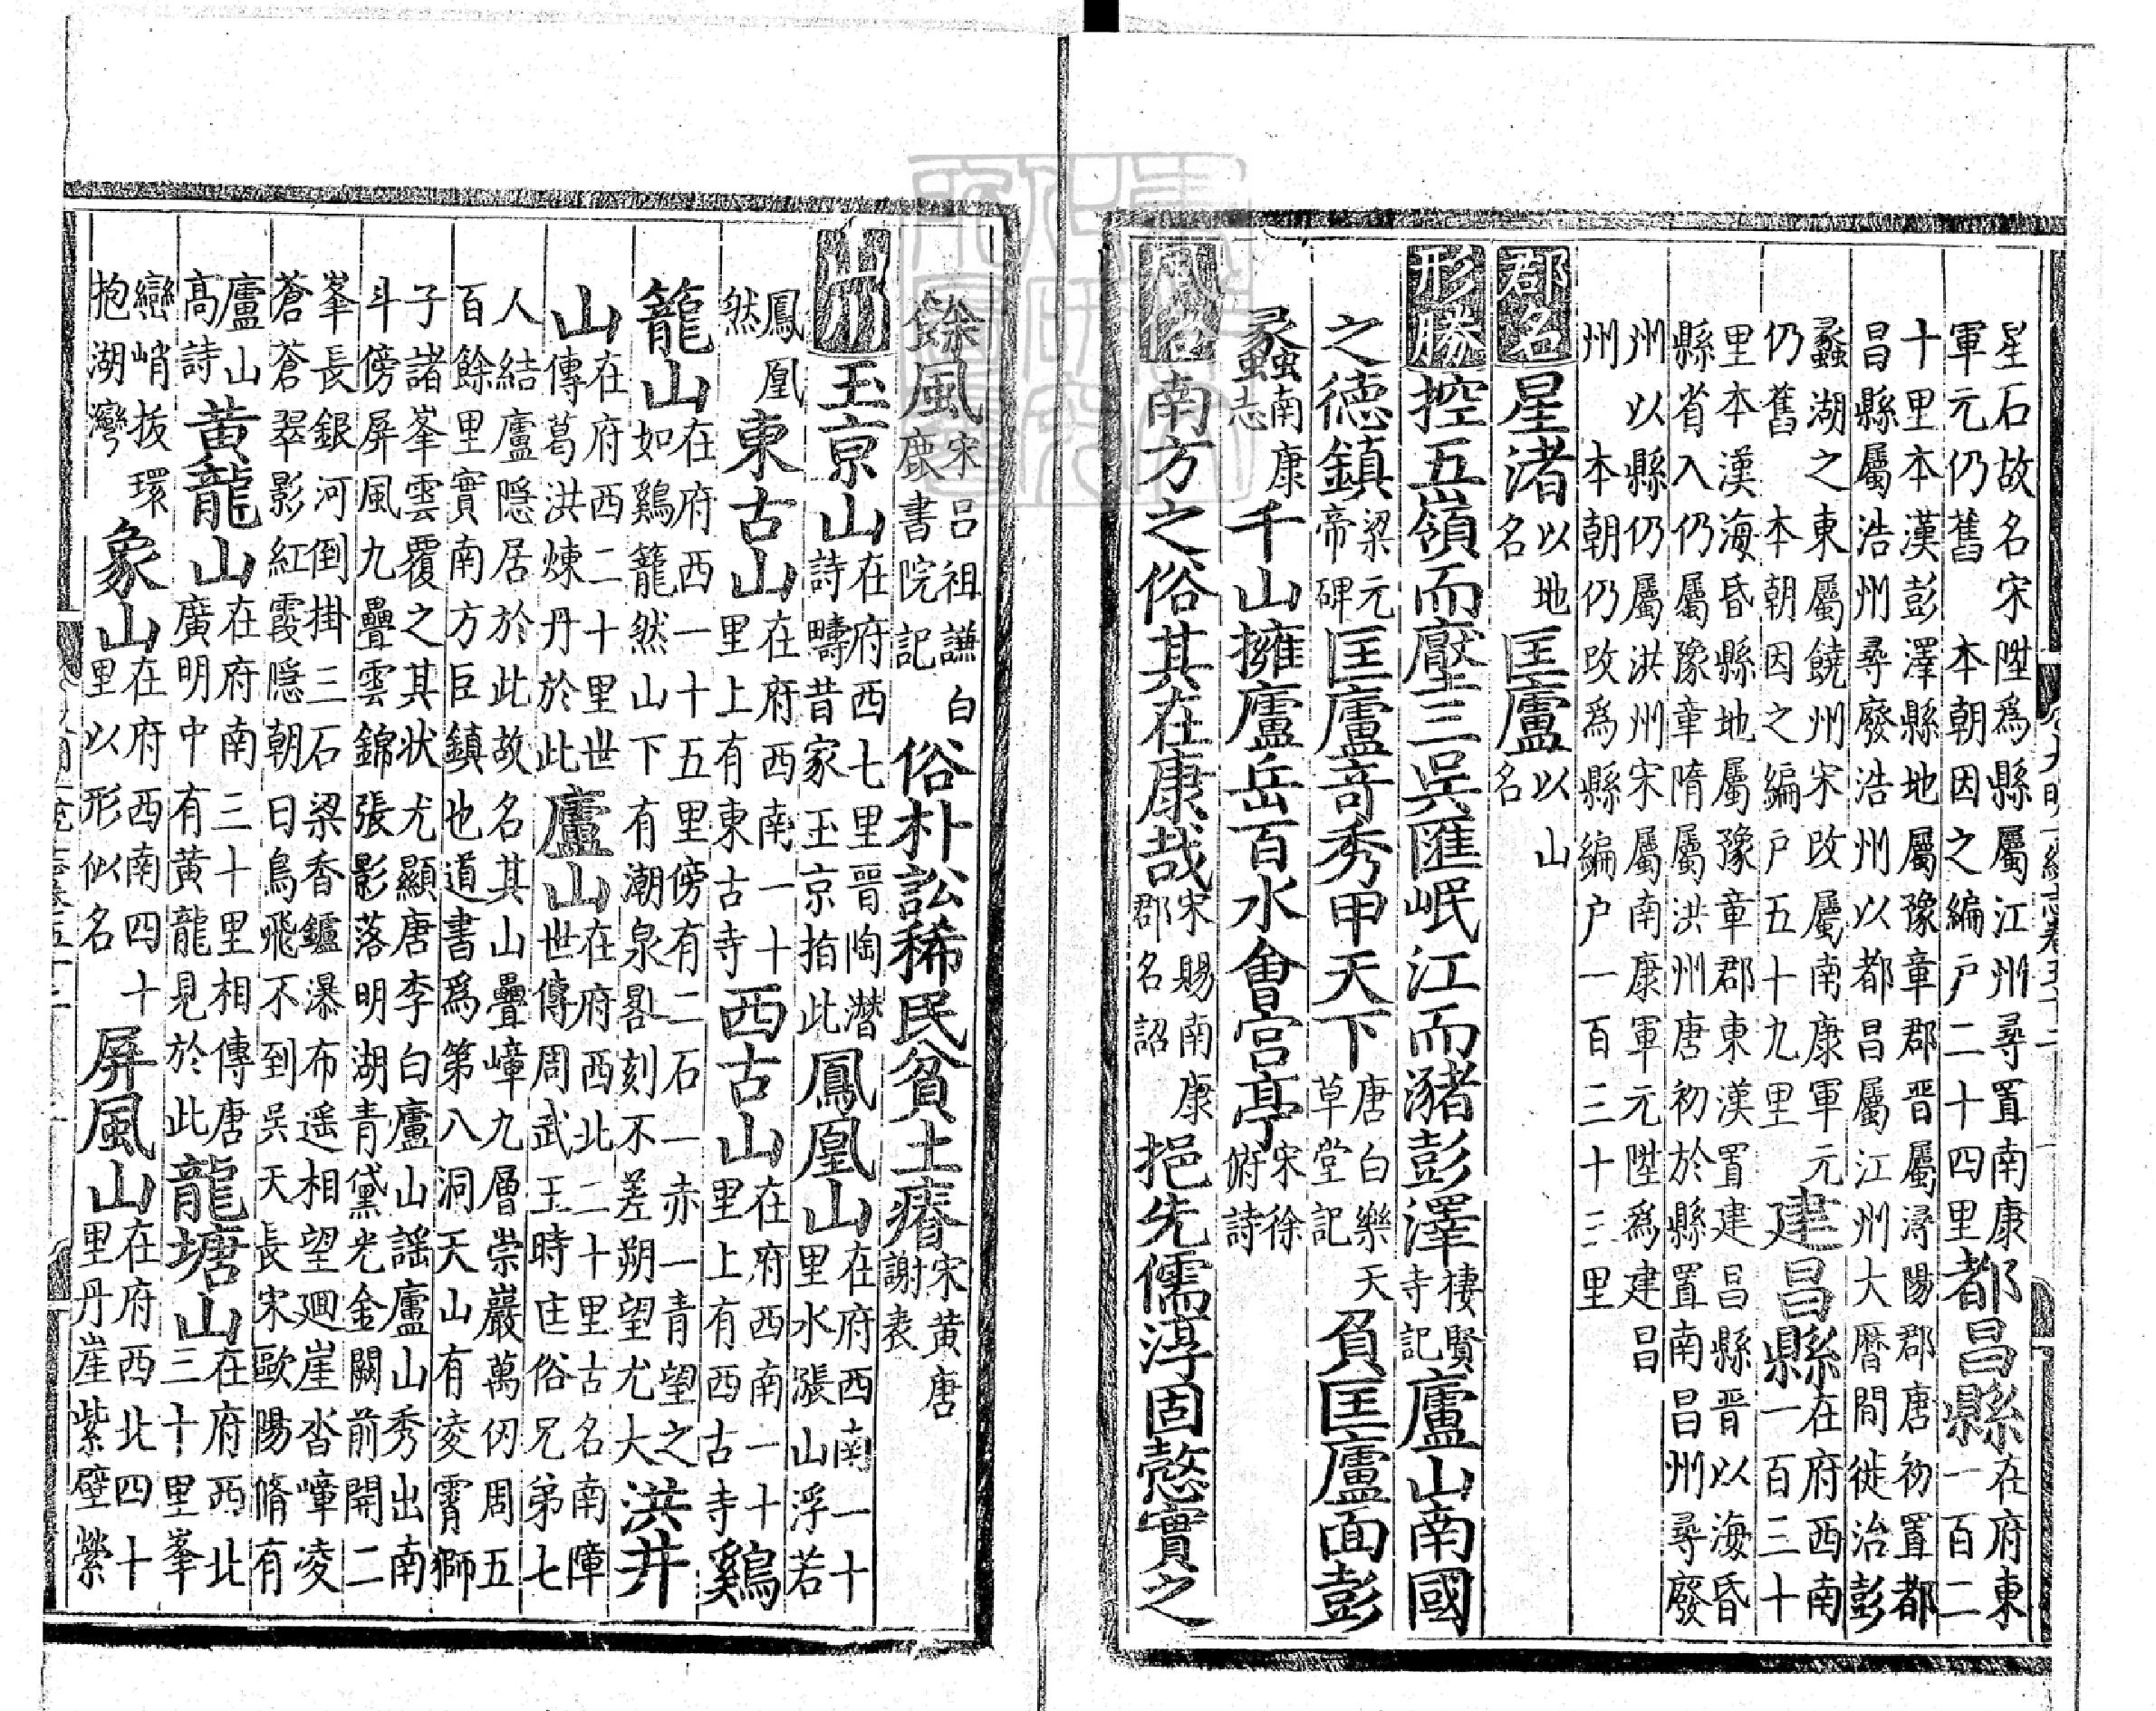 星石故名宋陞爲縣屬江州尋置南康
軍元仍舊 本朝因之編戶二十四里都昌縣在府東一百二
十里本漢彭澤縣地屬豫章郡晉屬潯陽郡唐初置都
昌縣屬浩州尋廢浩州以都昌屬江州大曆間徙治彭
蠡湖之東屬饒州宋改屬南康軍元
仍舊 本朝因之編戶五十九里建昌縣在府西南一百三十
里本漢海昏縣地屬豫章郡東漢置建昌縣晉以海昏
縣省入仍屬豫章隋屬洪州唐初於縣置南昌州尋廢
州以縣仍屬洪州宋屬南康軍元陞爲建昌
州 本朝仍改爲縣編戶一百三十三里
郡名星渚以地名匡廬以山名
形勝控五嶺而壓三吳匯岷江而瀦彭澤棲賢寺記廬山南國
之德鎮梁元帝碑匡廬竒秀甲天下唐白樂天草堂記負匡廬面彭
蠡南康志千山擁廬岳百水會宮亭宋徐俯詩
風俗南方之俗其在康哉宋賜南康郡名詔挹先儒淳固慤實之
餘風宋呂祖謙白鹿書院記俗朴訟稀民貧土瘠宋黃唐謝表
山川玉京山在府西七里晉陶潛詩疇昔家玉京指此鳳凰山在府西南一十里水漲山浮若
鳳凰然東古山在府西南一十里上有東古寺西古山在府西南一十里上有西古寺鷄
籠山在府西一十五里傍有二石一赤一青望之如鷄籠然山下有潮泉晷刻不差朔望尤大洪井
山在府西二十里世傳葛洪煉丹於此廬山在府西北二十里古名南障世傳周武王時匡俗兄弟七
人結廬隱居於此故名其山疊嶂九層崇巖萬仞周五
百餘里實南方巨鎮也道書爲第八洞天山有凌霄獅
子諸峯雲覆之其状尤顯唐李白廬山謠廬山秀出南
斗傍屏風九疊雲錦張影落明湖青黛光金闕前開二
峯長銀河倒掛三石梁香鑪瀑布遥相望迴崖沓嶂凌
蒼蒼翠影紅霞隱朝日鳥飛不到吳天長宋歐陽脩有
廬山高詩黃龍山在府南三十里相傳唐廣明中有黃龍見於此龍塘山在府西北三十里峯
巒峭拔環抱湖灣象山在府西南四十里以形似名屏風山在府西北四十里丹崖紫壁縈